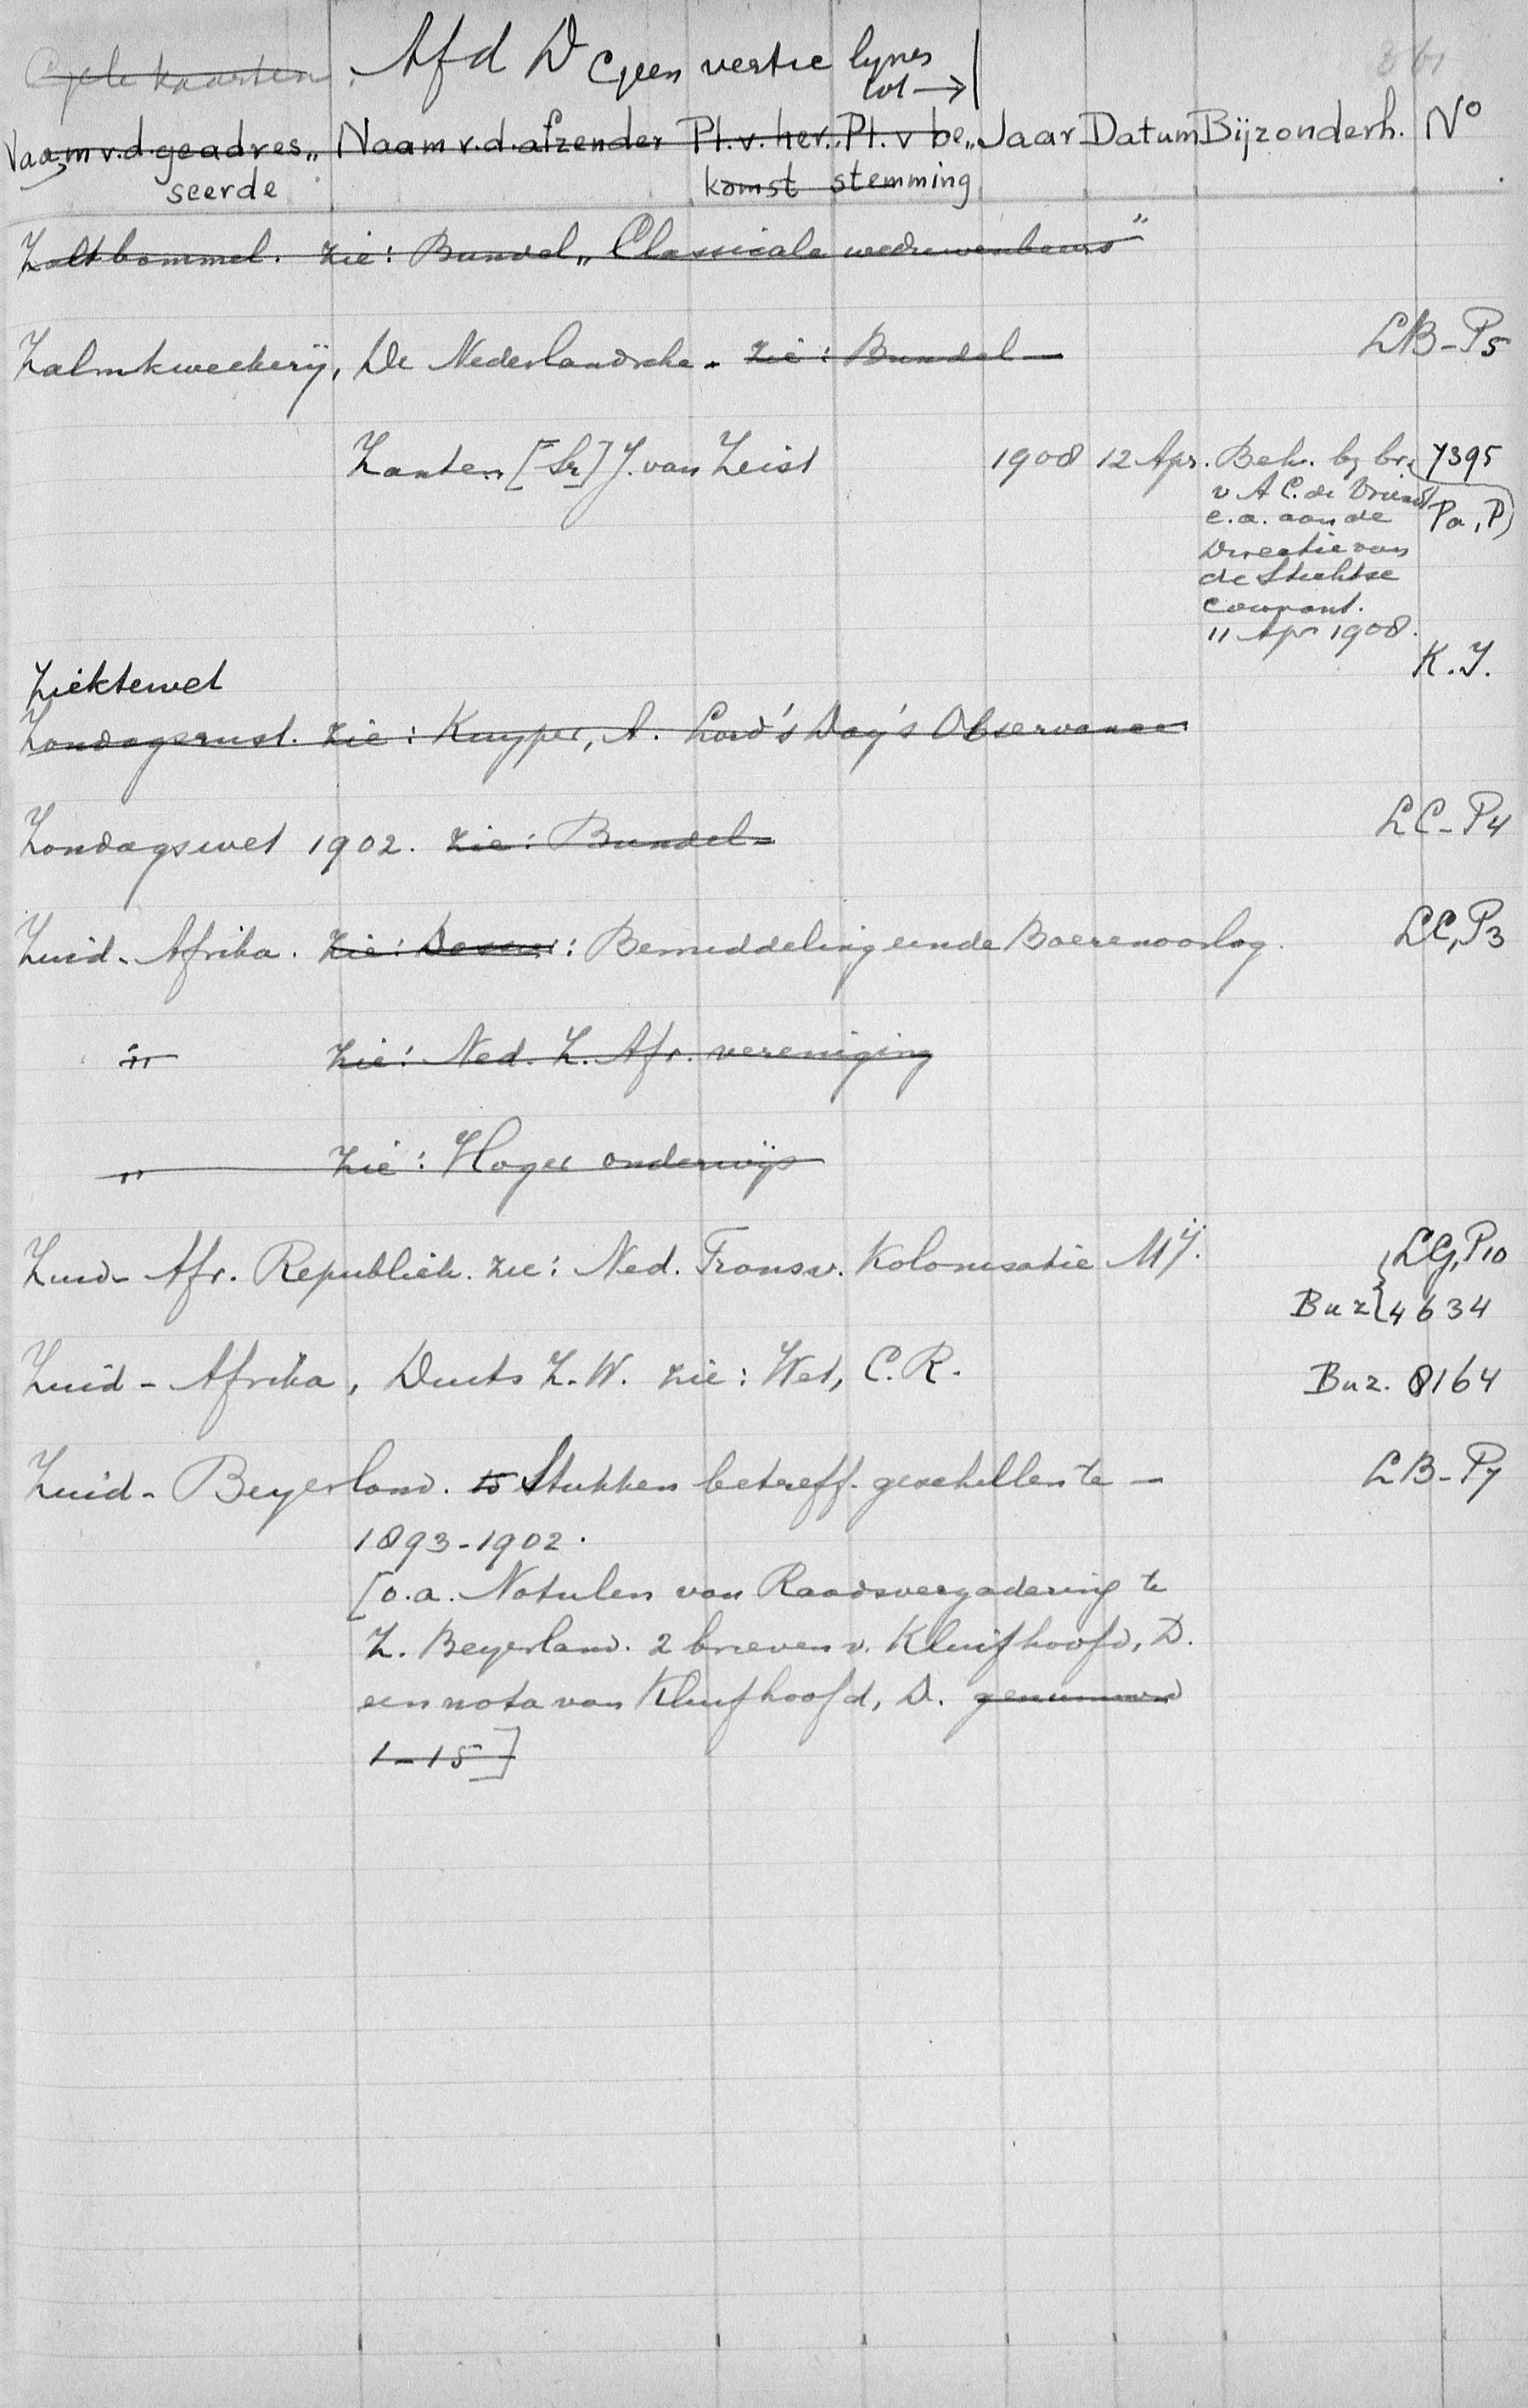 Gele kaarten. Afd D Geen vertic lynes
tot →|
Naam v.d. geadres„ Naam v.d. afzender Pl. v. her„ Pl. v be„ Jaar Datum Bijzonderh. No
seerde komst stemming
Zaltbommel. zie: Bundel „Classicale weduwenbeurs"
Zalmkweekerij, De Nederlandsche - zie: Bundel — LB-P5
Zanten [Sr] J. van Zeist 1908 12 Apr. Beh. bij br. 7395
v A C. de Vriend Pa, P)
e.a. aan de
Directie van
de Stichtse
courant.
11 Apr 1908.
Ziektewet K.I.
Zondagsrust. zie: Kuyper, A. Lord's Day's Observance
Zondagswet 1902. zie: Bundel- LC-P4
Zuid-Afrika. zie: Dossier: Bemiddeling einde Boerenoorlog. LC,P3
„ zie: Ned. Z. Afr. vereniging
„ zie: Hoger onderwijs
Zuid-Afr. Republiek. zie: Ned. Transv. Kolonisatie Mij. {LG,P10
Buz {4634
Zuid-Afrika, Duits Z.W. zie: Wet, C.R. Buz. 8164
Zuid-Beyerland. 15 Stukken betreff. geschillen te — LB-P7
1893-1902.
[o.a. Notulen van Raadsvergadering te
Z. Beyerland. 2 brieven v. Kluifhoofd, D.
een nota van Kluifhoofd, D. genummerd
1-15]